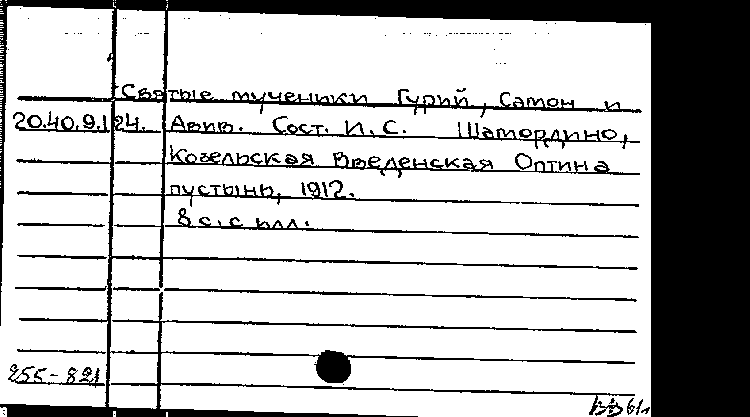 Святые мученики Гурий, Самон и
20.40.9.124. Авив. Сост. И.С. Шамордино,
Козельская Введенская Оптина
пустынь, 1912.
8 с. с илл.
255-821